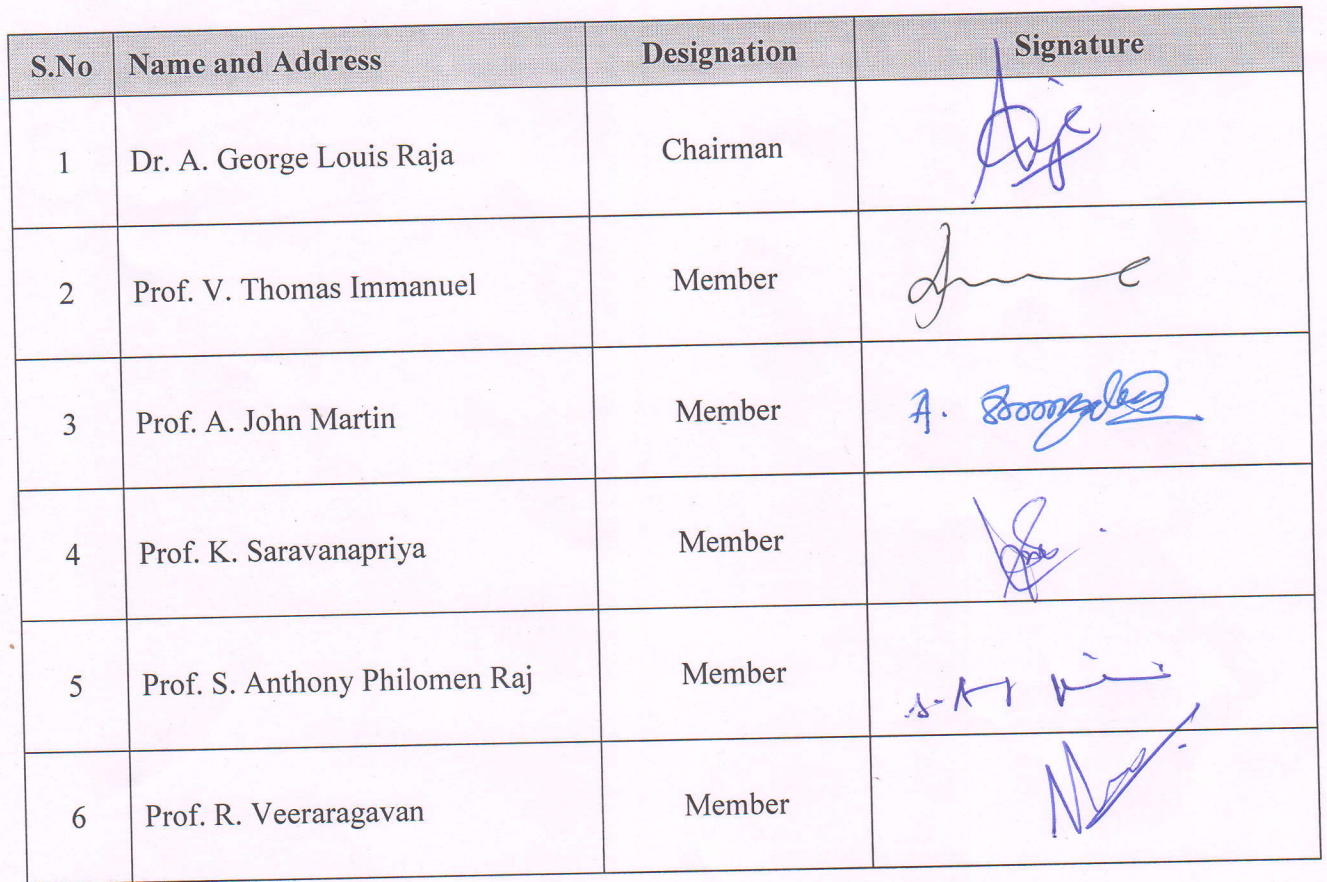 S.No Name and Address Designation Signature
1 Dr. A. George Louis Raja Chairman
2 Prof. V. Thomas Immanuel Member
3 Prof. A. John Martin Member A.
4 Prof. K. Saravanapriya Member
5 Prof. S. Anthony Philomen Raj Member
6 Prof. R. Veeraragavan Member